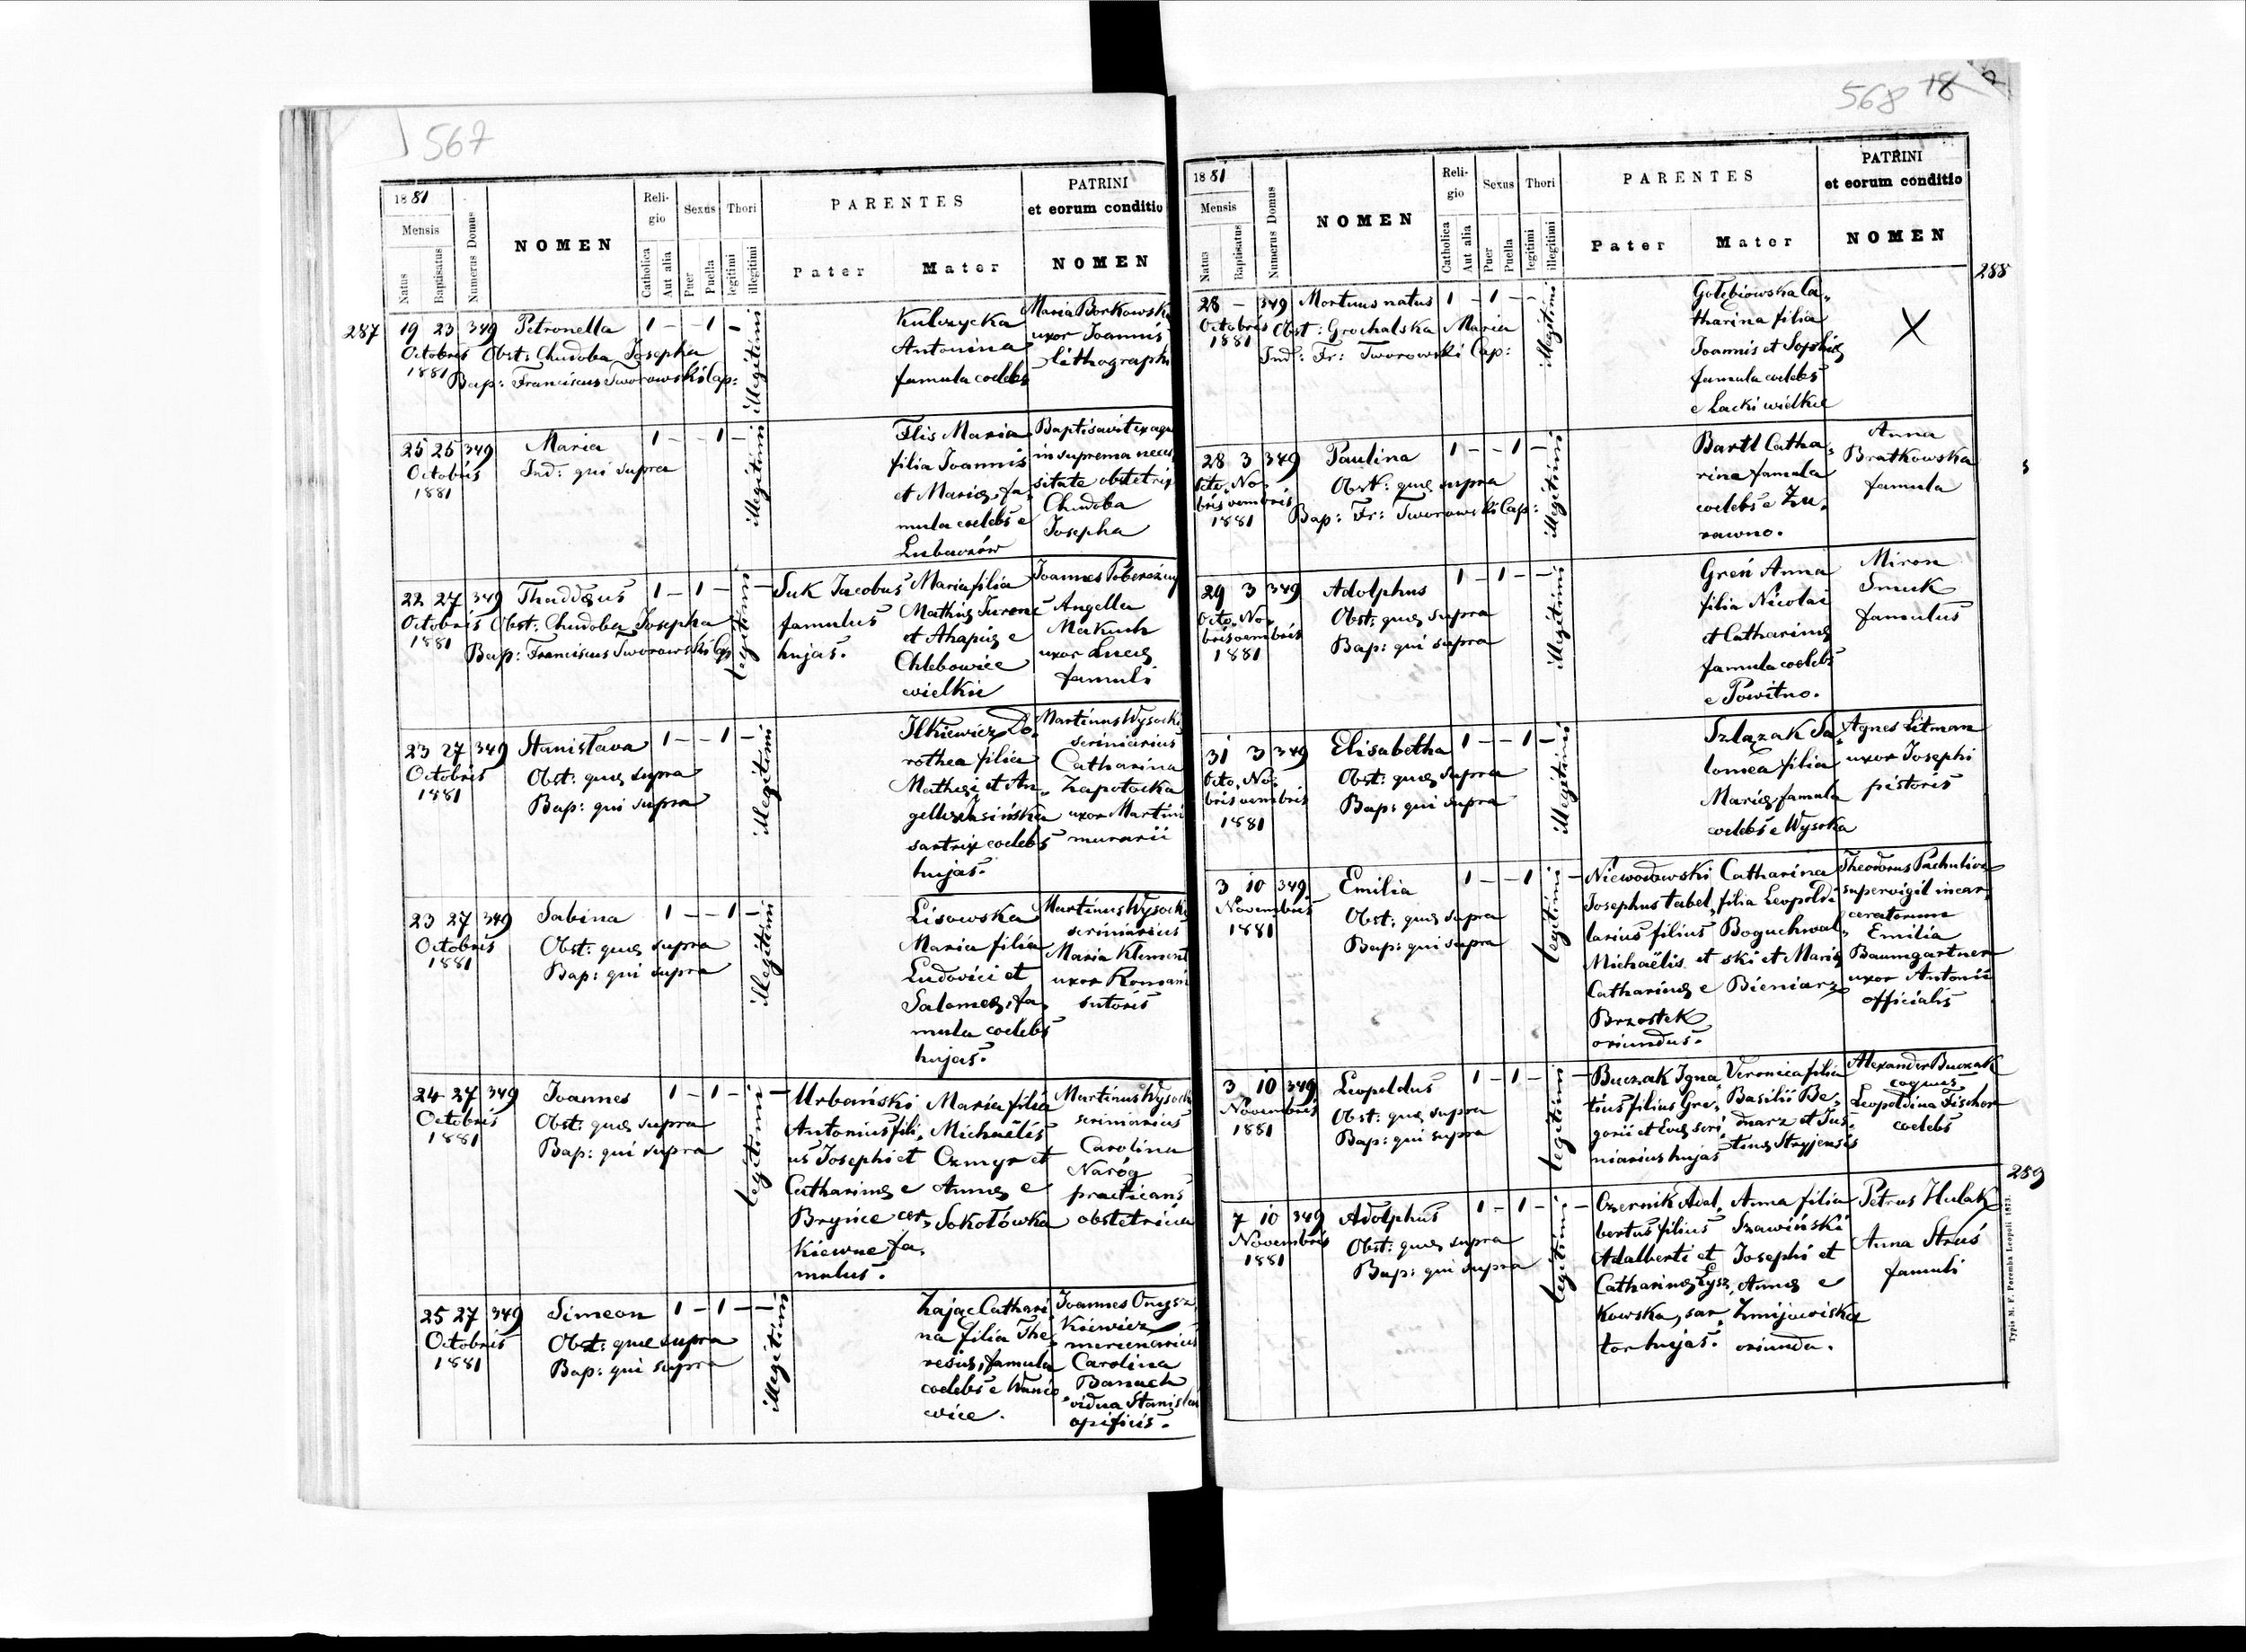 567
18 81
Mensis
Natus
Baptisatus
Numerus Domus
NOMEN
Reli-
gio
Catholica
Aut alia
Sexus
Puer
Puella
Thori
legitimi
illegitimi
PARENTES
Pater
Mater
PATRINI
et eorum conditio
NOMEN
287
19 23 349 Petronella 1 – – 1 –
Octobris Obst: Chudoba Josepha
1881 Bap: Franciscus Tworowski Cap:
illegitimi
Kulczycka
Antonina
famula coelebs
Maria Borkowska
uxor Joannis
lithographi
25 25 349 Maria 1 – – 1 –
Octobris Ind: qui supra
1881
illegitimi
Flis Maria
filia Joannis
et Mariæ, fa„
mula coelebs e
Lubaczów
Baptisavit ex aqua
in suprema neces
sitate obstetrix
Chudoba
Josepha
22 27 349 Thaddæus 1 – 1 – –
Octobris Obst: Chudoba Josepha
1881 Bap: Franciscus Tworowski Cap
legitimi
Suk Jacobus
famulus
hujas.
Maria filia
Mathiæ Surone
et Ahapiæ e
Chlebowice
wielkie
Joannes
Angella
Makuch
uxor Lucæ
famuli
23 27 349 Stanislava 1 – – 1 –
Octobris Obst: quæ supra
1881 Bap: qui supra
illegitimi
Ilkiewicz Do„
rothea filia
Mathæi et An„
gellæ Jasińska
sartrix coelebs
hujas.
Martinus Wysocki
scriniarius
Catharina
Zapotocka
uxor Martini
murarii
23 27 349 Sabina 1 – – 1 –
Octobris Obst: quæ supra
1881 Bap: qui supra
illegitimi
Lisowska
Maria filia
Ludovici et
Salomeæ, fa„
mula coelebs
hujas.
Martinus Wysocki
scriniarius
Maria Klement
uxor Romani
sutoris
24 27 349 Joannes 1 – 1 – –
Octobris Obst: quæ supra
1881 Bap: qui supra
legitimi
Urbański
Antonius fili„
us Josephi et
Catharinæ e
Bryńce cer„
kiewne fa„
mulus.
Maria filia
Michaëlis
Czmyr et
Annæ e
Sokołówka
Martinus Wysocki
scriniarius
Carolina
Naróg
practicans
obstetricia
25 27 349 Simeon 1 – 1 – –
Octobris Obst: quæ supra
1881 Bap: qui supra
illegitimi
Zając Cathari„
na filia The„
resiæ, famula
coelebs e
wice.
Joannes Onysz„
kiewicz
mercenarius
Carolina
Banach
vidua Stanislai
opificis.
568 18
18 81
Mensis
Natus
Baptisatus
Numerus Domus
NOMEN
Reli-
gio
Catholica
Aut alia
Sexus
Puer
Puella
Thori
legitimi
illegitimi
PARENTES
Pater
Mater
PATRINI
et eorum conditio
NOMEN
288
28 – 349 Mortuus natus 1 – 1 – –
Octobris Obst: Grochalska Maria
1881 Ind: Fr: Tworowski Cap:
illegitimi
Gołębiowska Ca„
tharina filia
Joannis et Sophiæ
famula coelebs
e Lacki wielkie
X
28 3 349 Paulina 1 – – 1 –
Octo„ No„ Obst: quæ supra
bris vembris
1881 Bap: Fr: Tworowski Cap:
illegitimi
Bartl Catha„
rina famula
coelebs e Żu„
rawno.
Anna
Bratkowska
famula
29 3 349 Adolphus 1 – 1 – –
Octo„ No„ Obst: quæ supra
bris vembris
1881 Bap: qui supra
illegitimi
Greń Anna
filia Nicolai
et Catharinæ
famula coelebs
e Powitno.
Miron
Smuk
famulus
31 3 349 Elisabetha 1 – – 1 –
Octo„ No„ Obst: quæ supra
bris vembris
1881 Bap: qui supra
illegitimi
Szlązak Sa„
lomea filia
Mariæ, famula
coelebs e Wysocka
Agnes Litman
uxor Josephi
pistoris
3 10 349 Emilia 1 – – 1 –
Novembris Obst: quæ supra
1881 Bap: qui supra
legitimi
Niewodowski
Josephus tabel„
larius filius
Michaëlis et
Catharinæ e
Brzostek
oriundus.
Catharina
filia Leopoldi
Boguchwal„
ski et Mariæ
Bieniarz
Theodorus
supervigil incar„
ceratorum
Emilia
Baumgartner
uxor Antonii
officialis
3 10 349 Leopoldus 1 – 1 – –
Novembris Obst: quæ supra
1881 Bap: qui supra
legitimi
Buczak Igna„
tius filius Gre„
gorii et Evæ scri„
niarius hujas
Veronica filia
Basilii Be„
dnarz et Jus„
tinæ Stryjensis
Alexander Buczak
coquus
Leopoldina Fischer
coelebs
289
7 10 349 Adolphus 1 – 1 – –
Novembris Obst: quæ supra
1881 Bap: qui supra
legitimi
Czernik Adal„
bertus filius
Adalberti et
Catharinæ Łysz„
kowska, sar„
tor hujas.
Anna filia
Szawiński
Josephi et
Annæ e
Żmijowiska
oriunda.
Petrus Hulak
Anna Struś
famuli
Typis M. F. Poremba Leopoli 1873.